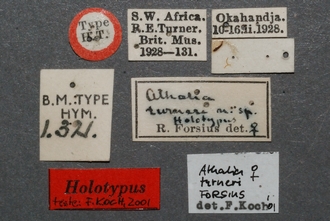 Type
H.T.
S.W. Africa.
R.E. Turner.
Brit. Mus.
1928—131.
Okahandja.
10-16.ii.1928.
B.M. TYPE
HYM.
1.321.
Athalia
turneri n. sp.
Holotypus
R. Forsius det. ♀
Holotypus
teste: F. KOCH, 2001
Athalia ♀
turneri
FORSIUS
det. F. Koch 01